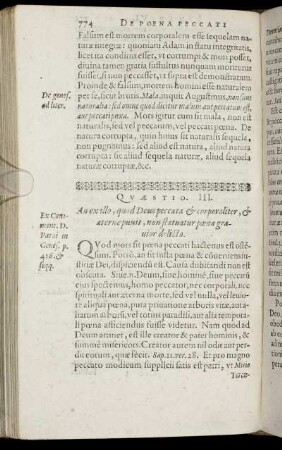 774 DE POENA PECCATI
Falsum est mortem corporalem esse sequelam na-
turæ integræ: quoniam Adam in statu integritatis,
licet ita conditus esset, vt corrumpi & mori posset,
diuina tamen gratia suffultus nunquam moriturus
fuisset, si non peccasset, vt supra est demonstratum.
Proinde & falsum, mortem homini esse naturalem
per se, sicut huius. Mala, inquit Augustinus, non sunt
De genes.
ad liter.
naturalia: sed omne quod dicitur malum aut peccatum est,
aut peccati pœna. Mors igitur cum sit mala, non est
naturalis, sed vel peccatum, vel peccati pœna. De
natura corrupta, quin huius sit naturalis sequela,
non pugnamus: sed aliud est natura, aliud natura
corrupta: sic aliud sequela naturæ, aliud sequela
naturæ corruptæ, &c.
QVÆSTIO. III.
An ex illo, quod Deus peccata & corporaliter, &
æterne punit, non statuatur pœna gra-
uior delicto.
Ex Com-
ment. D.
Parei in
Genes. p.
418. &
seqq.
QVod mors sit pœna peccati hactenus est osten-
sum. Porro, an sit iusta pœna & conueniens iu-
stitiæ Dei, dispiciendum est. Causa dubitandi non est
obscura. Siue n. Deum, siue hominem, siue pœnæ
speciem spectemus, homo peccator, nec corporali, nec
spirituali aut æterna morte, sed vel nulla, vel leuio-
re aliqua pœna, puta priuatione arboris vitæ, aut a-
liarum arborum, vel totius paradisi, aut alia temporali
pœna afficiendus fuisse videtur. Nam quod ad
Deum attinet, is est ille creator & pater hominis, &
summe misericors. Creator autem nil odit aut per-
dit eorum, quæ fecit. Sap. 11. ver. 28. Et pro magno
peccato modicum supplicii satis est patri, vt Mitio
Teren-